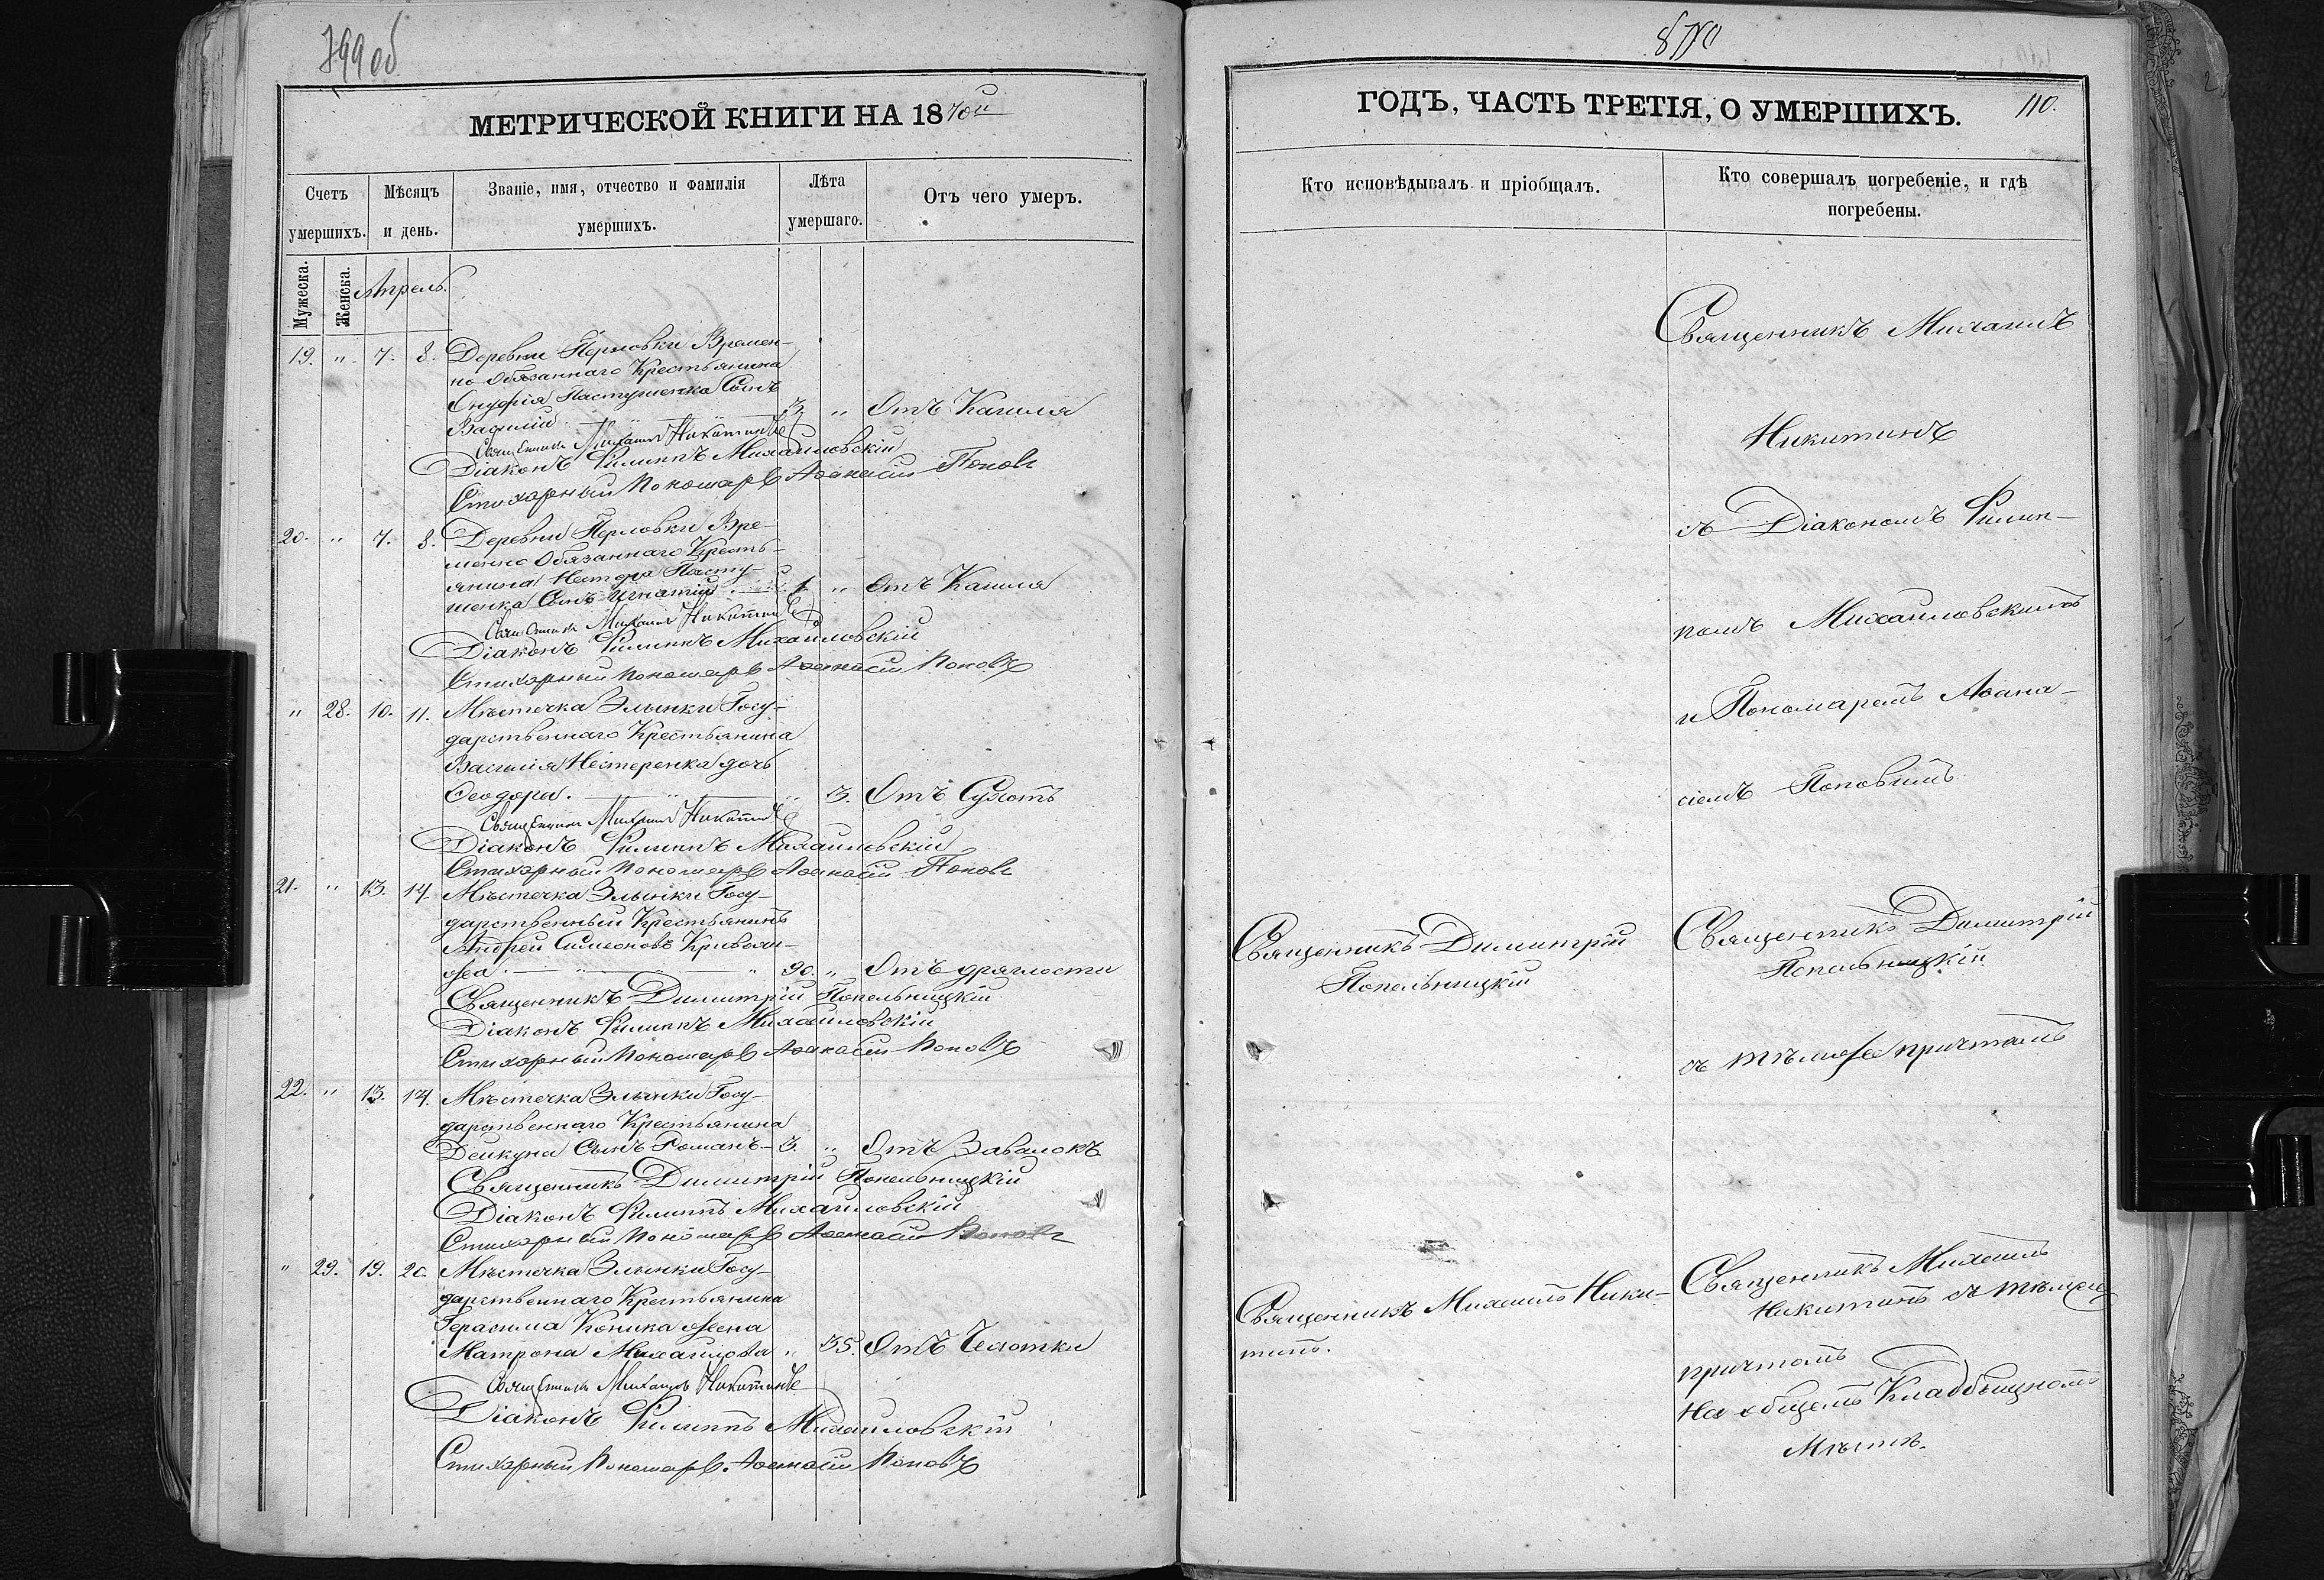 799 об
МЕТРИЧЕСКОЙ КНИГИ НА 1870й
Счетъ умершихъ.
Мѣсяцъ и день.
Званіе, имя, отчество и фамилія умершихъ.
Лѣта умершаго.
Отъ чего умеръ.
Мужеска.
Женска.
Апрель.
19. " 7. 8. Деревни Перловки Времен-
но Обязаннаго Крестьянина
Онуфрія Пастушенка Сынъ
Василій 3 " Отъ Кашля
Священникъ Михаилъ Никитинъ
Діаконъ Филиппъ Михайловскій
Стихарный Пономарь Аѳанасій Поповъ
20. " 7. 8. Деревни Перловки Вре-
менно Обязаннаго Кресть-
янина Нестора Пасту-
шенка Сынъ Игнатій 1 " Отъ Кашля
Священникъ Михаилъ Никитинъ
Діаконъ Филиппъ Михайловскій
Стихарный Пономарь Аѳанасій Поповъ
" 28. 10. 11. Мѣстечка Злынки Госу-
дарственнаго Крестьянина
Василія Нестеренка дочь
Ѳеодора. " " 3. Отъ Сухотъ
Священникъ Михаилъ Никитинъ
Діаконъ Филиппъ Михайловскій
Стихарный Пономарь Аѳанасій Поповъ
21. " 13. 14. Мѣстечка Злынки Госу-
дарственный Крестьянинъ
Андрей Симеоновъ
90. " Отъ дряхлости
Священникъ Димитрій Попельницкій
Діаконъ Филиппъ Михайловскій
Стихарный Пономарь Аѳанасій Поповъ
22. " 13. 14. Мѣстечка Злынки Госу-
дарственнаго Крестьянина
Дейкуна Сынъ Романъ 3. " Отъ Завалокъ
Священникъ Димитрій Попельницкій
Діаконъ Филиппъ Михайловскій
Стихарный Пономарь Аѳанасій Поповъ
" 29. 19. 20. Мѣстечка Злынки Госу-
дарственнаго Крестьянина
Герасима Коника жена
Матрона Михайлова " 35. Отъ Чахотки
Священникъ Михаилъ Никитинъ
Діаконъ Филиппъ Михайловскій
Стихарный Пономарь Аѳанасій Поповъ
ГОДЪ, ЧАСТЬ ТРЕТІЯ, О УМЕРШИХЪ.
110.
Кто исповѣдывалъ и пріобщалъ.
Кто совершалъ погребеніе, и гдѣ погребены.
Священникъ Михаилъ
Никитинъ
съ Діакономъ Филип-
помъ Михайловскимъ
и Пономаремъ Аѳана-
сіемъ Поповымъ
Священникъ Димитрій
Попельницкій
Священникъ Димитрій
Попельницкій
съ тѣмже причтомъ
Священникъ Михаилъ Ники-
тинъ.
Священникъ Михаилъ
Никитинъ съ тѣмже
причтомъ
На общемъ Кладбищномъ
Мѣстѣ.